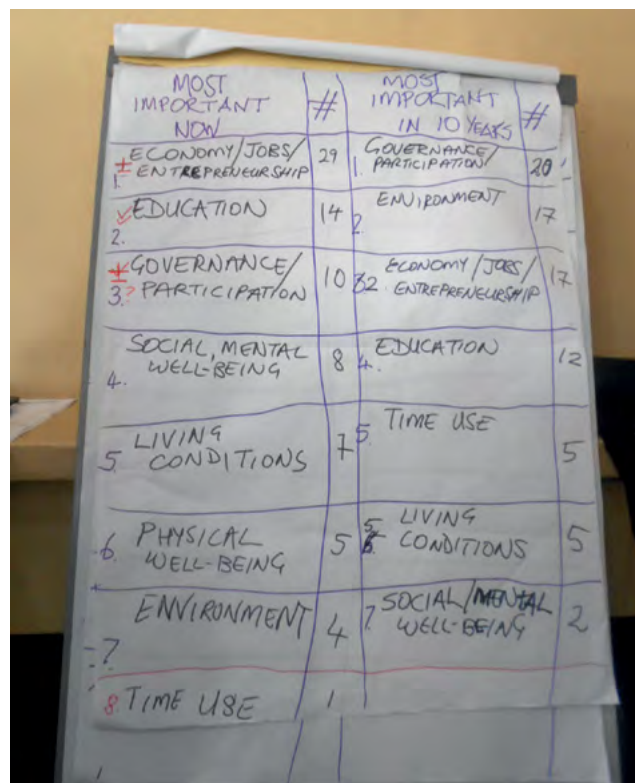 MOST IMPORTANT NOW # MOST IMPORTANT IN 10 YEARS #
1. ± ECONOMY/JOBS/ ENTREPRENEURSHIP 29 1. GOVERNANCE/ PARTICIPATION/ 20
2. ✓ EDUCATION 14 2. ENVIRONMENT 17
3. ± ? GOVERNANCE/ PARTICIPATION 10 32 ECONOMY/JOBS/ ENTREPRENEURSHIP 17
4. SOCIAL, MENTAL WELL-BEING 8 4. EDUCATION 12
5. LIVING CONDITIONS 7 5. TIME USE 5
6. PHYSICAL WELL-BEING 5 5 LIVING CONDITIONS 5
7 ENVIRONMENT 4 7. SOCIAL/MENTAL WELL-BEING 2
8. TIME USE 1